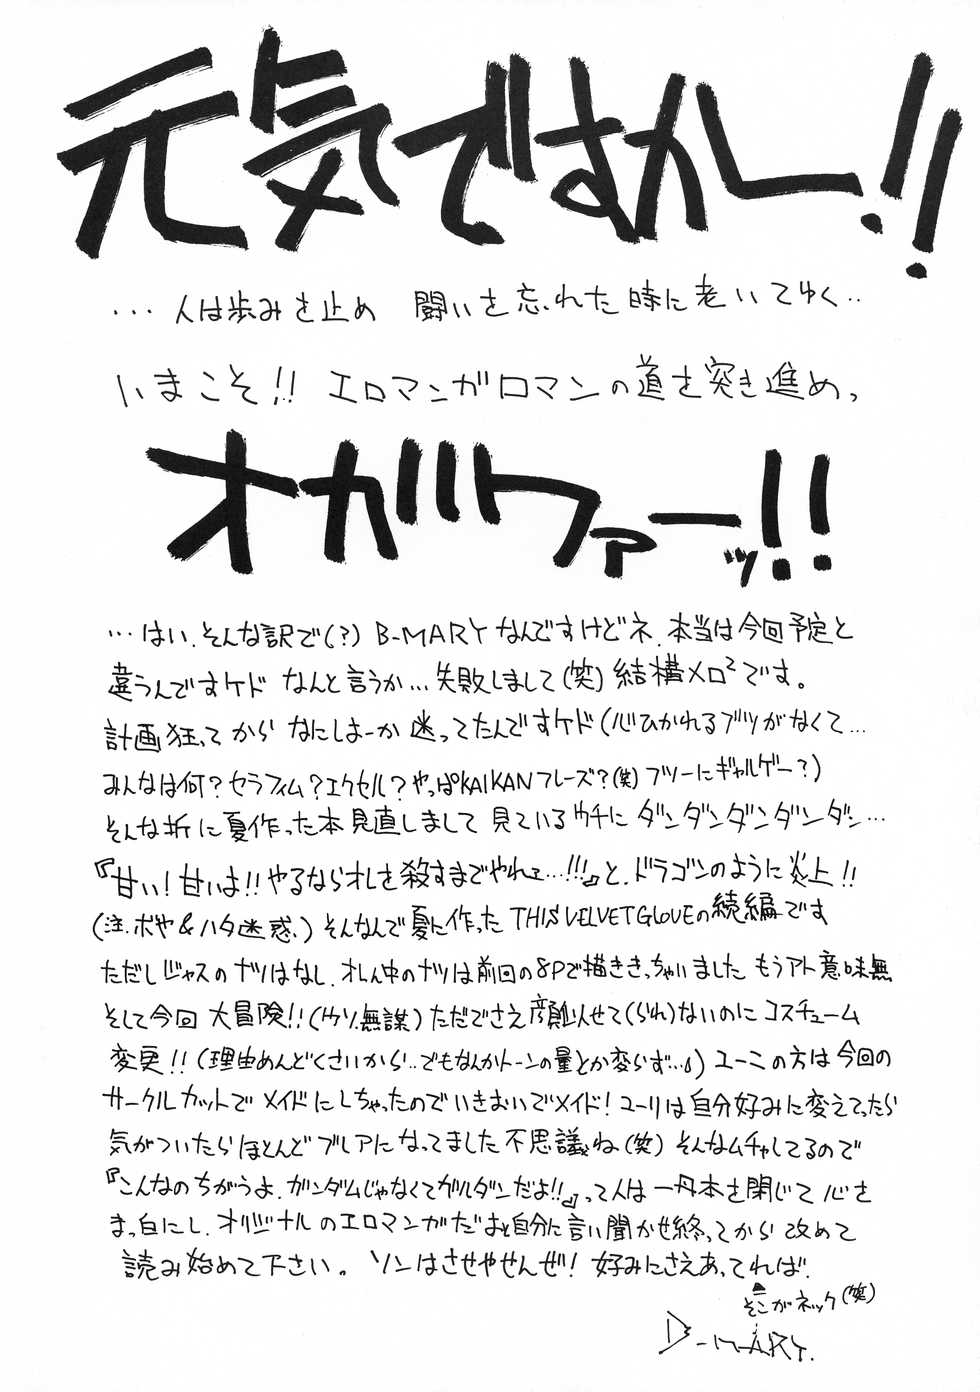 元気ですかー!!
…人は歩みを止め 闘いを忘れた時に老いてゆく‥
いまこそ!! エロマンガロマンの道を突き進めっ
オガワァーッ!!
…はい、そんな訳で(?) B-MARYなんですけどネ、本当は今回予定と
違うんですケド なんと言うか…失敗しまして(笑) 結構メロ²です。
計画狂ってから なにしよーか 迷ってたんですケド(心ひかれるブツがなくて…
みんなは何?セラフィム?エクセル?やっぱKAIKANフレーズ?(笑)フツーにギャルゲー?)
そんな折に夏作った本見直しまして 見ているウチに ダンダンダンダンダン…
『甘い!甘いよ!!やるならオレを殺すまでやれェ…!!!』と、ドラゴンのように炎上!!
(注.ボヤ&ハタ迷惑、)そんなんで夏に作ったTHIS VELVET GLOVEの続編です
ただしジャスのナツはなし、オレん中のナツは前回の8Pで描ききっちゃいました もうアト意味無
そして今回 大冒険!!(ウソ、無謀)ただでさえ顔似せて(られ)ないのに コスチューム
変更!!(理由めんどくさいから‥でもなんかトーンの量とか変らず…)ユーこの方は今回の
サークルカットで メイドにしちゃったのでいきおいでメイド!ユーリは自分好みに変えてったら
気がついたらほとんどブレアになってました不思議ね(笑) そんなムチャしてるので
『こんなのちがうよ、ガンダムじゃなくてガルダンだよ!!』って人は 一旦本を閉じて 心を
まっ白にし、オリジナルのエロマンガだよと自分に言い聞かせ終ってから 改めて
読み始めて下さい。 ソンはさせやせんぜ! 好みにさえあってれば、
そこがネック(笑)
B-MARY.